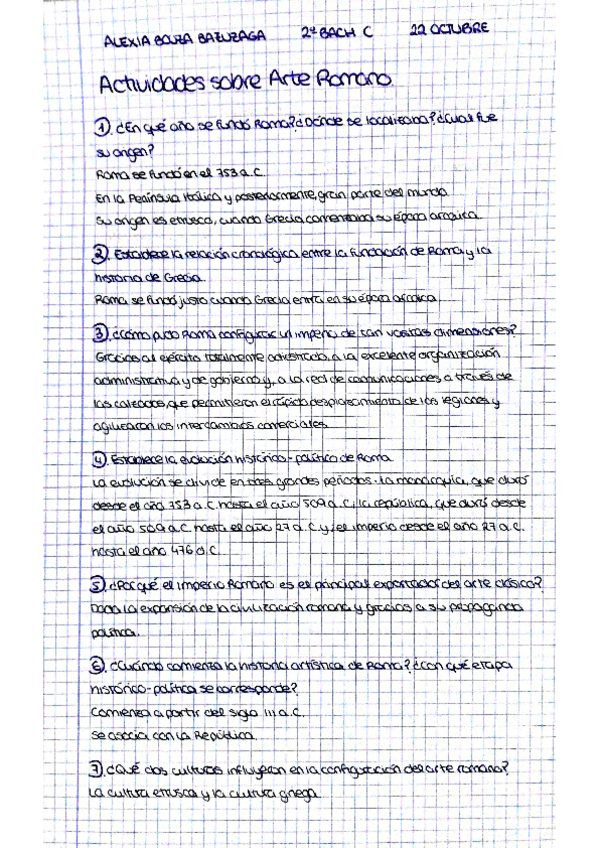 ALEXIA BOUZA BAZUZAGA 2º BACH C 22 OCTUBRE
Actividades sobre Arte Romano.
1. ¿En qué año se fundó Roma? ¿Dónde se localizaba? ¿Cuál fue
su origen?
Roma se fundó en el 753 a.C.
En la Península Itálica y posteriormente, gran parte del mundo.
Su origen es etrusco, cuando Grecia comenzaba su época arcaica.
2. Establece la relación cronológica entre la fundación de Roma y la
historia de Grecia.
Roma se fundó justo cuando Grecia entra en su época arcaica.
3. ¿Cómo pudo Roma configurar un imperio de tan vastas dimensiones?
Gracias al ejército totalmente adiestrado, a la excelente organización
administrativa y de gobierno y, a la red de comunicaciones a través de
las calzadas, que permitieron el rápido desplazamiento de las legiones y
agilizaron los intercambios comerciales.
4. Establece la evolución histórico-política de Roma.
La evolución se divide en tres grandes periodos: la monarquía, que duró
desde el año 753 a.C. hasta el año 509 a.C., la república, que duró desde
el año 509 a.C. hasta el año 27 a.C. y, el imperio desde el año 27 a.C.
hasta el año 476 d.C.
5. ¿Por qué el imperio Romano es el principal exportador del arte clásico?
Dada la expansión de la civilización romana y gracias a su propaganda
política.
6. ¿Cuándo comienza la historia artística de Roma? ¿Con qué etapa
histórico-política se corresponde?
Comienza a partir del siglo III a.C.
Se asocia con la República.
7. ¿Qué dos culturas influyeron en la configuración del arte romano?
La cultura etrusca y la cultura griega.